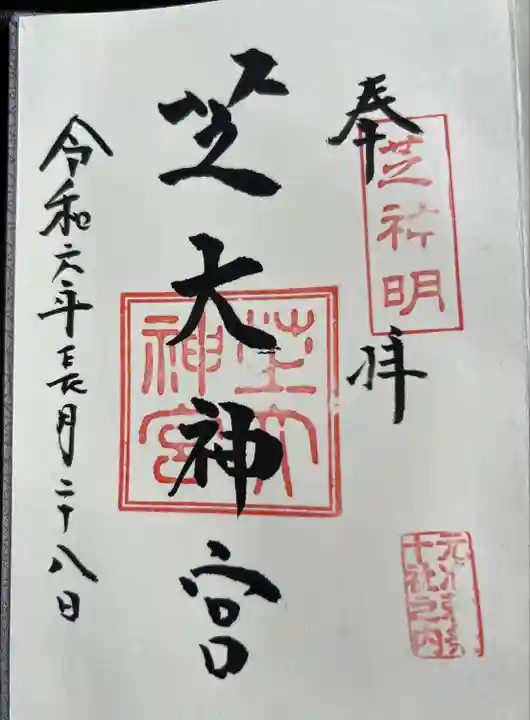 奉拝
芝神明
元准勅祭
十社之内
芝大神宮
芝大
神宮
令和六年長月二十八日